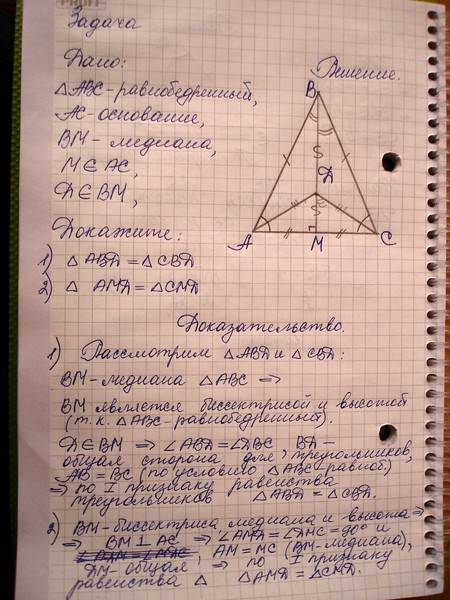 Задача
Дано:
△ABC-равнобедренный,
AC-основание,
BM-медиана,
M∈AC,
D∈BM,
Решение.
B
S
D
S
A
M
C
Докажите:
1) △ABD=△CBD
2) △AMD=△CMD
Доказательство.
1) Рассмотрим △ABD и △CBD:
BM-медиана △ABC ⇒
BM является биссектрисой и высотой
(т.к. △ABC-равнобедренный).
D∈BM ⇒ ∠ABD=∠DBC BD-
общая сторона для треугольников,
AB=BC (по условию △ABC-равноб.)
⇒ по I признаку равенства
треугольников △ABD=△CBD.
2) BM-биссектриса медиана и высота ⇒
⇒ BM⊥AC ⇒ ∠AMD=∠DMC=90° и
AM=MC (BM-медиана),
DM-общая ⇒ по I признаку
равенства △ △AMD=△CMD.